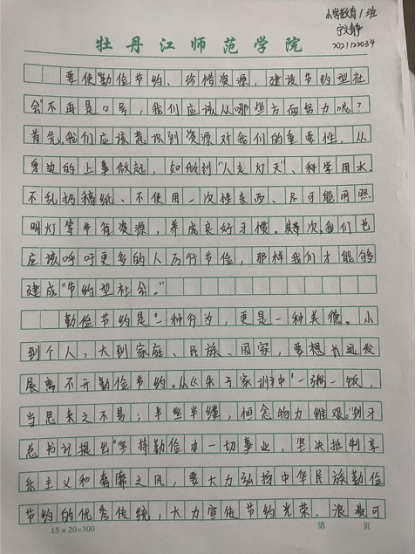 小学教育1班
2021120034
牡丹江师范学院
要使勤俭节约、珍惜资源,建设节约型社
会"不再是口号,我们应该从哪些方面努力呢?
首先,我们应该意识到资源对我们的重要性,从
身边的上事做起,如做到"人走灯灭"、科学用水
不乱扔稿纸、不使用一次性东西、尽可能用照
明灯等节省资源,养成良好习惯。其次,我们也
应该呼吁更多的人历行节俭,那样我们才能够
建成"节约型社会。"
勤俭节约是一种行为,更是一种美德。小
到个人,大到家庭、民族、国家,要想长远发
展离不开勤俭节约。从《朱子家训》中"一粥一饭,
当思来之不易;半丝半缕,恒念物力维艰。"到习
总书记提出"坚持勤俭办一切事业,坚决抵制享
乐主义和奢靡之风,要大力弘扬中华民族勤俭
节约的优秀传统,大力宣传节约光荣、浪费可
15×20=300
第 页